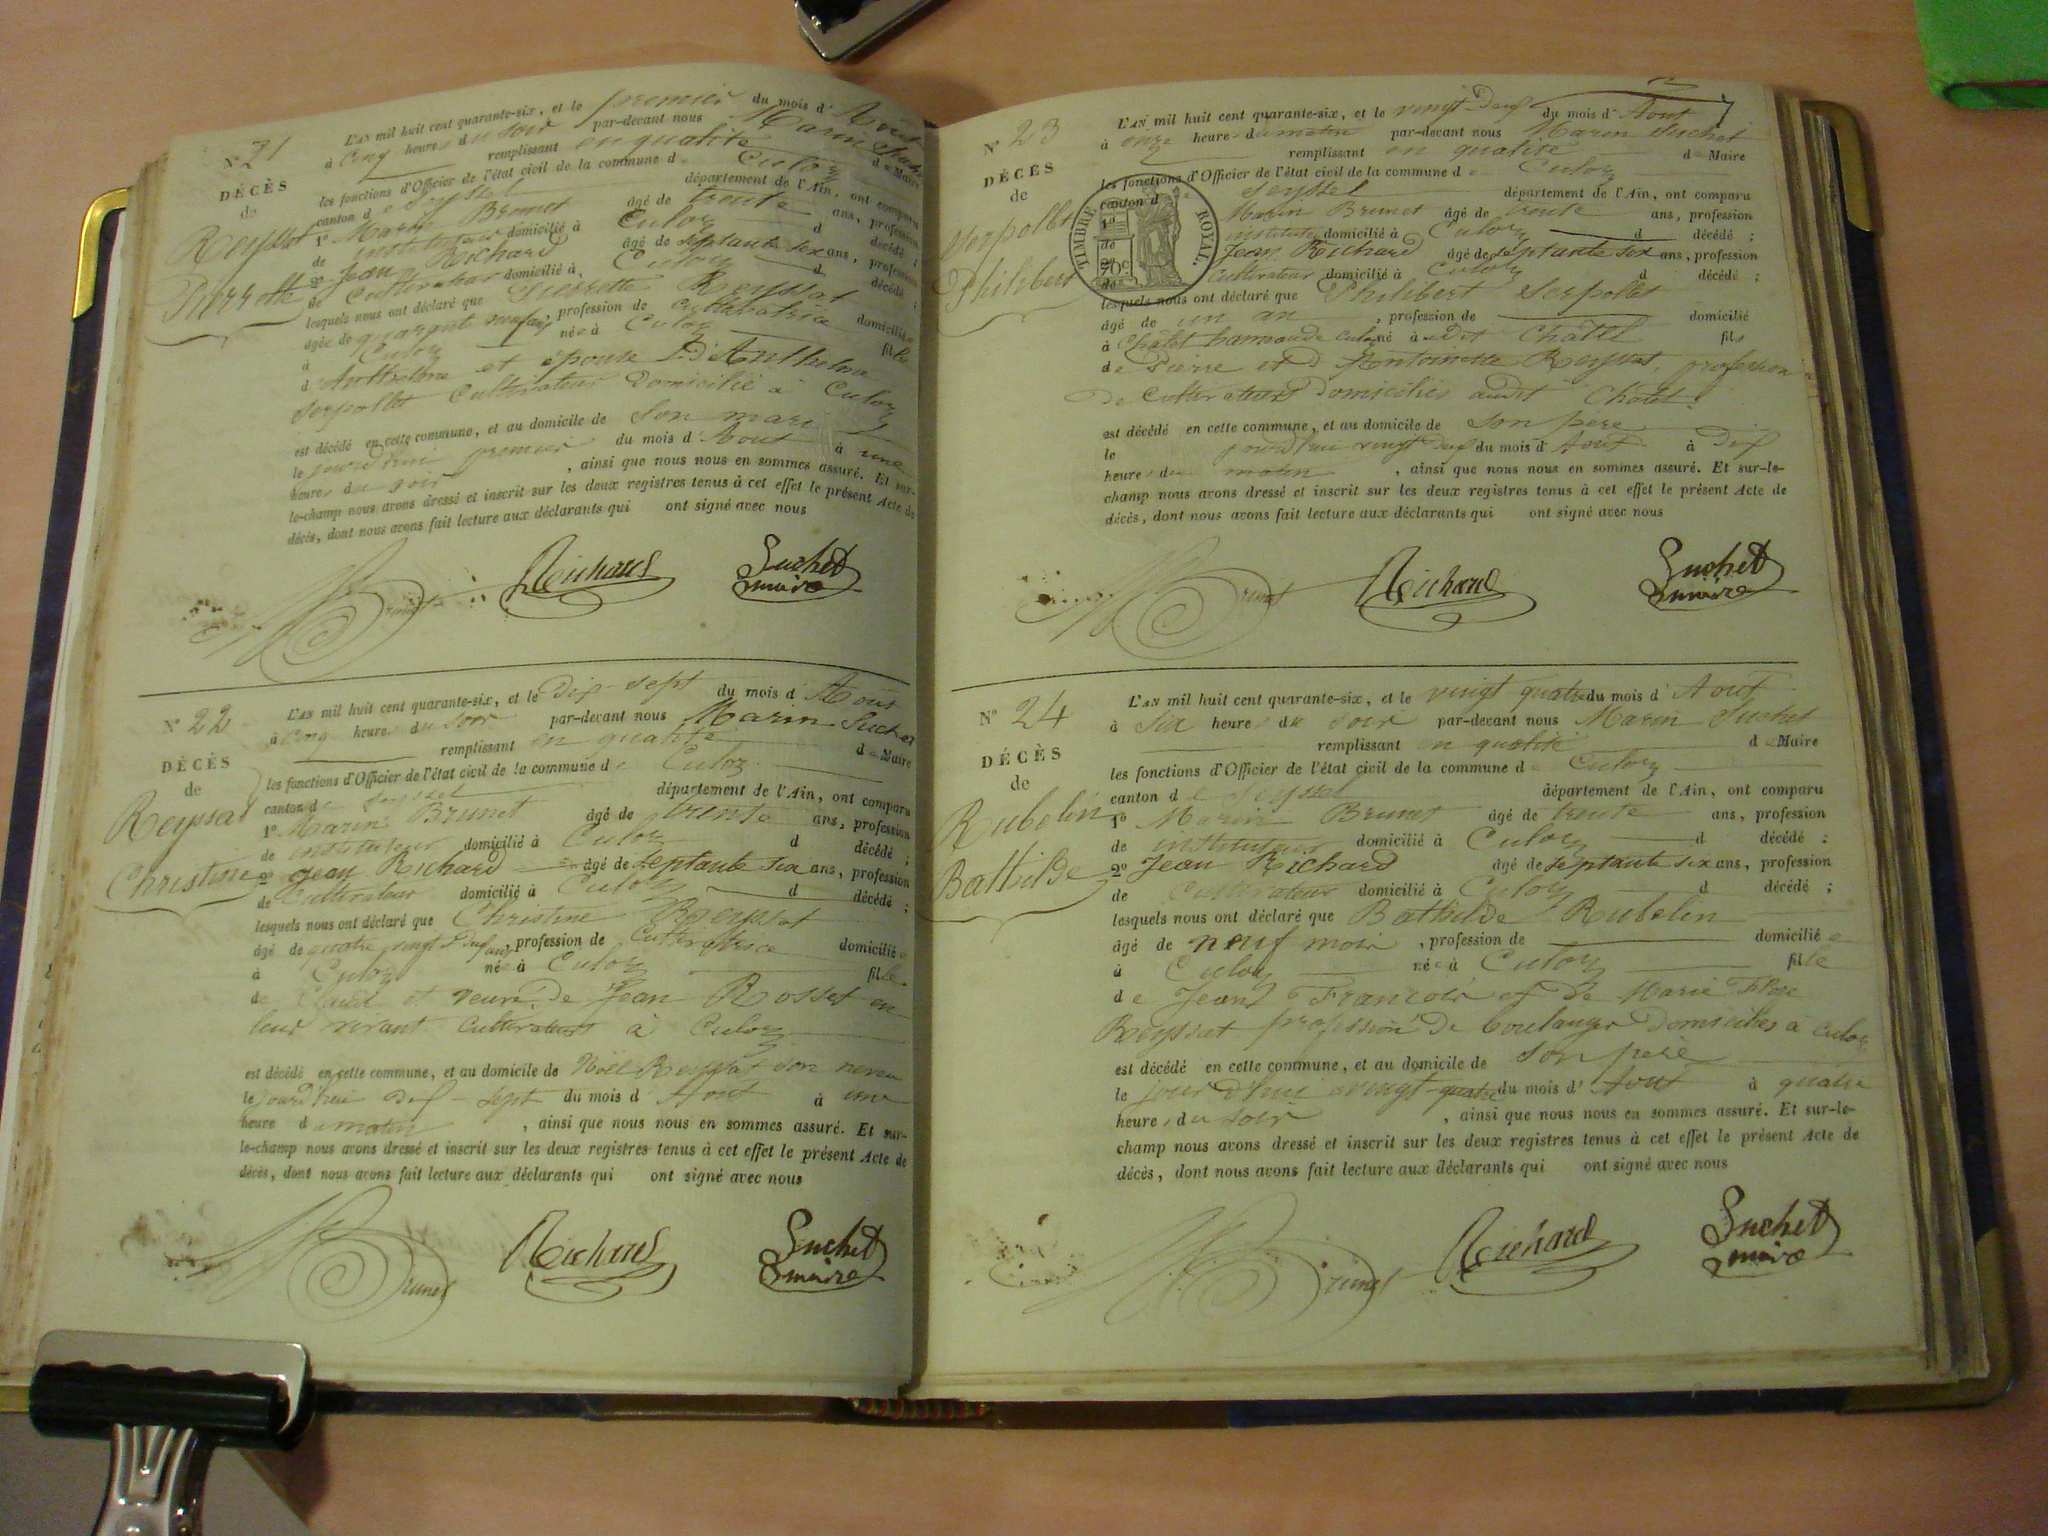 N° 21
DÉCÈS
de
Reyssat
Pierrette
L'AN mil huit cent quarante-six, et le premier du mois d'Aout
à Cinq heures du soir par-devant nous Marin Suchet
remplissant en qualité de Maire
les fonctions d'Officier de l'état civil de la commune de Culoz
canton de Seyssel département de l'Ain, ont comparu
1° Marin Brunet âgé de trente ans, profession
de instituteur domicilié à Culoz d décédé ;
2° Jean Richard âgé de septante six ans, profession
de Cultivateur domicilié à Culoz d décédé ;
lesquels nous ont déclaré que Pierrette Reyssat
agée de quarante neuf ans, profession de cultivatrice domiciliée
à Culoz née à Culoz fille
d'Anthelme et épouse d'Anthelme
Serpollet Cultivateur Domicilié à Culoz
est décédé en cette commune, et au domicile de Son mari
le jourd'hui premier du mois d'Aout à une
heure du soir, ainsi que nous nous en sommes assuré. Et sur-
le-champ nous avons dressé et inscrit sur les deux registres tenus à cet effet le présent Acte de
décès, dont nous avons fait lecture aux déclarants qui ont signé avec nous
Brunet Richard Suchet
maire
N° 22
DÉCÈS
de
Reyssat
Christine
L'AN mil huit cent quarante-six, et le Dix-sept du mois d'Aout
à Cinq heures du soir par-devant nous Marin Suchet
remplissant en qualité de Maire
les fonctions d'Officier de l'état civil de la commune de Culoz
canton de Seyssel département de l'Ain, ont comparu
1° Marin Brunet âgé de trente ans, profession
de instituteur domicilié à Culoz d décédé ;
2° Jean Richard âgé de septante six ans, profession
de Cultivateur domicilié à Culoz d décédé ;
lesquels nous ont déclaré que Christine Reyssat
âgé de quatre vingt Deux ans, profession de Cultivatrice domiciliée
à Culoz née à Culoz fille
de Claude et veuve de Jean Rosset en
leur vivant Cultivateurs à Culoz
est décédé en cette commune, et au domicile de Noël Reyssat son neveu
le jourd'hui dix-sept du mois d'Aout à une
heure du matin, ainsi que nous nous en sommes assuré. Et sur-
le-champ nous avons dressé et inscrit sur les deux registres tenus à cet effet le présent Acte de
décès, dont nous avons fait lecture aux déclarants qui ont signé avec nous
Brunet Richard Suchet
maire
N° 23
DÉCÈS
de
Serpollet
Philibert
TIMBRE ROYAL.
70c
L'AN mil huit cent quarante-six, et le vingt Deux du mois d'Aout
à onze heures du matin par-devant nous Marin Suchet
remplissant en qualité de Maire
les fonctions d'Officier de l'état civil de la commune de Culoz
canton d Seyssel département de l'Ain, ont comparu
1° Marin Brunet âgé de trente ans, profession
de instituteur domicilié à Culoz d décédé ;
2° Jean Richard âgé de septante six ans, profession
de Cultivateur domicilié à Culoz d décédé ;
lesquels nous ont déclaré que Philibert Serpollet
âgé de un an, profession de domicilié
à Châtel hameau de Culoz né à dit Châtel fils
de Pierre et d'Antoinette Reyssat, profession
De Cultivateurs Domiciliés audit Châtel
est décédé en cette commune, et au domicile de son père
le jourd'hui vingt deux du mois d'Aout à Dix
heures du matin, ainsi que nous nous en sommes assuré. Et sur-le-
champ nous avons dressé et inscrit sur les deux registres tenus à cet effet le présent Acte de
décès, dont nous avons fait lecture aux déclarants qui ont signé avec nous
Brunet Richard Suchet
maire
N° 24
DÉCÈS
de
Rubelin
Bathilde
L'AN mil huit cent quarante-six, et le vingt quatre du mois d'Aout
à Six heures du soir par-devant nous Marin Suchet
remplissant en qualité de Maire
les fonctions d'Officier de l'état civil de la commune de Culoz
canton de Seyssel département de l'Ain, ont comparu
1° Marin Brunet âgé de trente ans, profession
de instituteur domicilié à Culoz d décédé ;
2° Jean Richard âgé de septante six ans, profession
de Cultivateur domicilié à Culoz d décédé ;
lesquels nous ont déclaré que Bathilde Rubelin
âgé de neuf mois, profession de domiciliée
à Culoz née à Culoz fille
de Jean François et de Marie
Reyssat profession De boulanger Domiciliés à Culoz
est décédé en cette commune, et au domicile de son père
le jour d'hui vingt-quatre du mois d'Aout à quatre
heures du soir, ainsi que nous nous en sommes assuré. Et sur-le-
champ nous avons dressé et inscrit sur les deux registres tenus à cet effet le présent Acte de
décès, dont nous avons fait lecture aux déclarants qui ont signé avec nous
Brunet Richard Suchet
maire